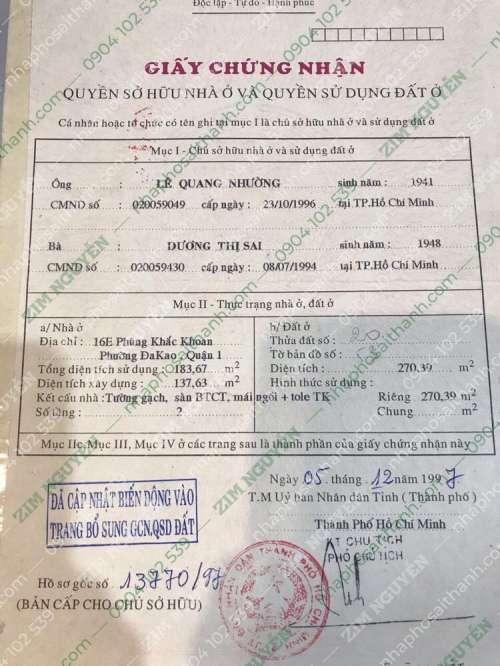 Độc lập - Tự do - Hạnh phúc
GIẤY CHỨNG NHẬN
QUYỀN SỞ HỮU NHÀ Ở VÀ QUYỀN SỬ DỤNG ĐẤT Ở
Cá nhân hoặc tổ chức có tên ghi tại mục I là chủ sở hữu nhà ở và sử dụng đất ở
Mục I - Chủ sở hữu nhà ở và sử dụng đất ở
Ông : LÊ QUANG NHƯỜNG sinh năm : 1941
CMND số : 020059049 cấp ngày : 23/10/1996 tại TP.Hồ Chí Minh
Bà : DƯƠNG THỊ SAI sinh năm : 1948
CMND số : 020059430 cấp ngày : 08/07/1994 tại TP.Hồ Chí Minh
Mục II - Thực trạng nhà ở, đất ở
a/ Nhà ở
Địa chỉ : 16E Phùng Khắc Khoan
Phường ĐaKao, Quận 1
Tổng diện tích sử dụng : 183,67 m2
Diện tích xây dựng : 137,63 m2
Kết cấu nhà : Tường gạch, sàn BTCT, mái ngói + tole TK
Số tầng : 2
b/ Đất ở
Thửa đất số :
Tờ bản đồ số :
Diện tích : 270,39 m2
Hình thức sử dụng :
Riêng 270,39 m2
Chung m2
Mục IIc, Mục III, Mục IV ở các trang sau là thành phần của giấy chứng nhận này
Ngày 05 tháng 12 năm 1997
T.M Uỷ ban Nhân dân Tỉnh ( Thành phố )
Thành Phố Hồ Chí Minh
KT CHỦ TỊCH
PHÓ CHỦ TỊCH
ĐÃ CẬP NHẬT BIẾN ĐỘNG VÀO
TRANG BỔ SUNG GCN.QSD ĐẤT
Hồ sơ gốc số 13770/97
(BẢN CẤP CHO CHỦ SỞ HỮU)
ZIM NGUYỄN — 0904 102 539 — nhaphosaithanh.com